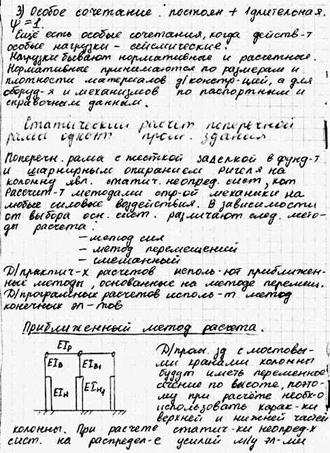 3) Особое сочетание: постоян + 1 длительная.
ψ = 1.
Ещё есть особые сочетания, когда действ-т
особые нагрузки - сейсмические.
Нагрузки бывают нормативные и расчетные.
Нормативные принимаются по размерам и
плотности материалов д/констр-ций, а для
оборуд-я и механизмов по паспортным и
справочным данным.
Статический расчет поперечной
рамы одноэт пром. здания
Поперечн. рама с жесткой заделкой в фунд-т
и шарнирным опиранием ригеля на
колонну явл. статич. неопред. сист, кот
рассчит-т методами стр-ой механики на
любые силовые воздействия. В зависимости
от выбора осн. сист. различают след. мето-
ды расчета:
- метод сил
- метод перемещений
- смешанный
Д/практич-х расчетов исполь-ют приближен-
ные методы, основанные на методе перемещ.
Д/програмных расчетов исполь-т метод
конечных эл-тов
Приближенный метод расчета.
EIр
EIв EIв1
EIн EIн1
Д/пром. зд с мостовы-
ми кранами колонны
будут иметь переменное
сечение по высоте, поэто-
му при расчете необх-о
использовать харак-ки
верхней и нижней частей
колонны. При расчете статич-ки неопред-х
сист. на распредел-е усилий м/у эл-ми